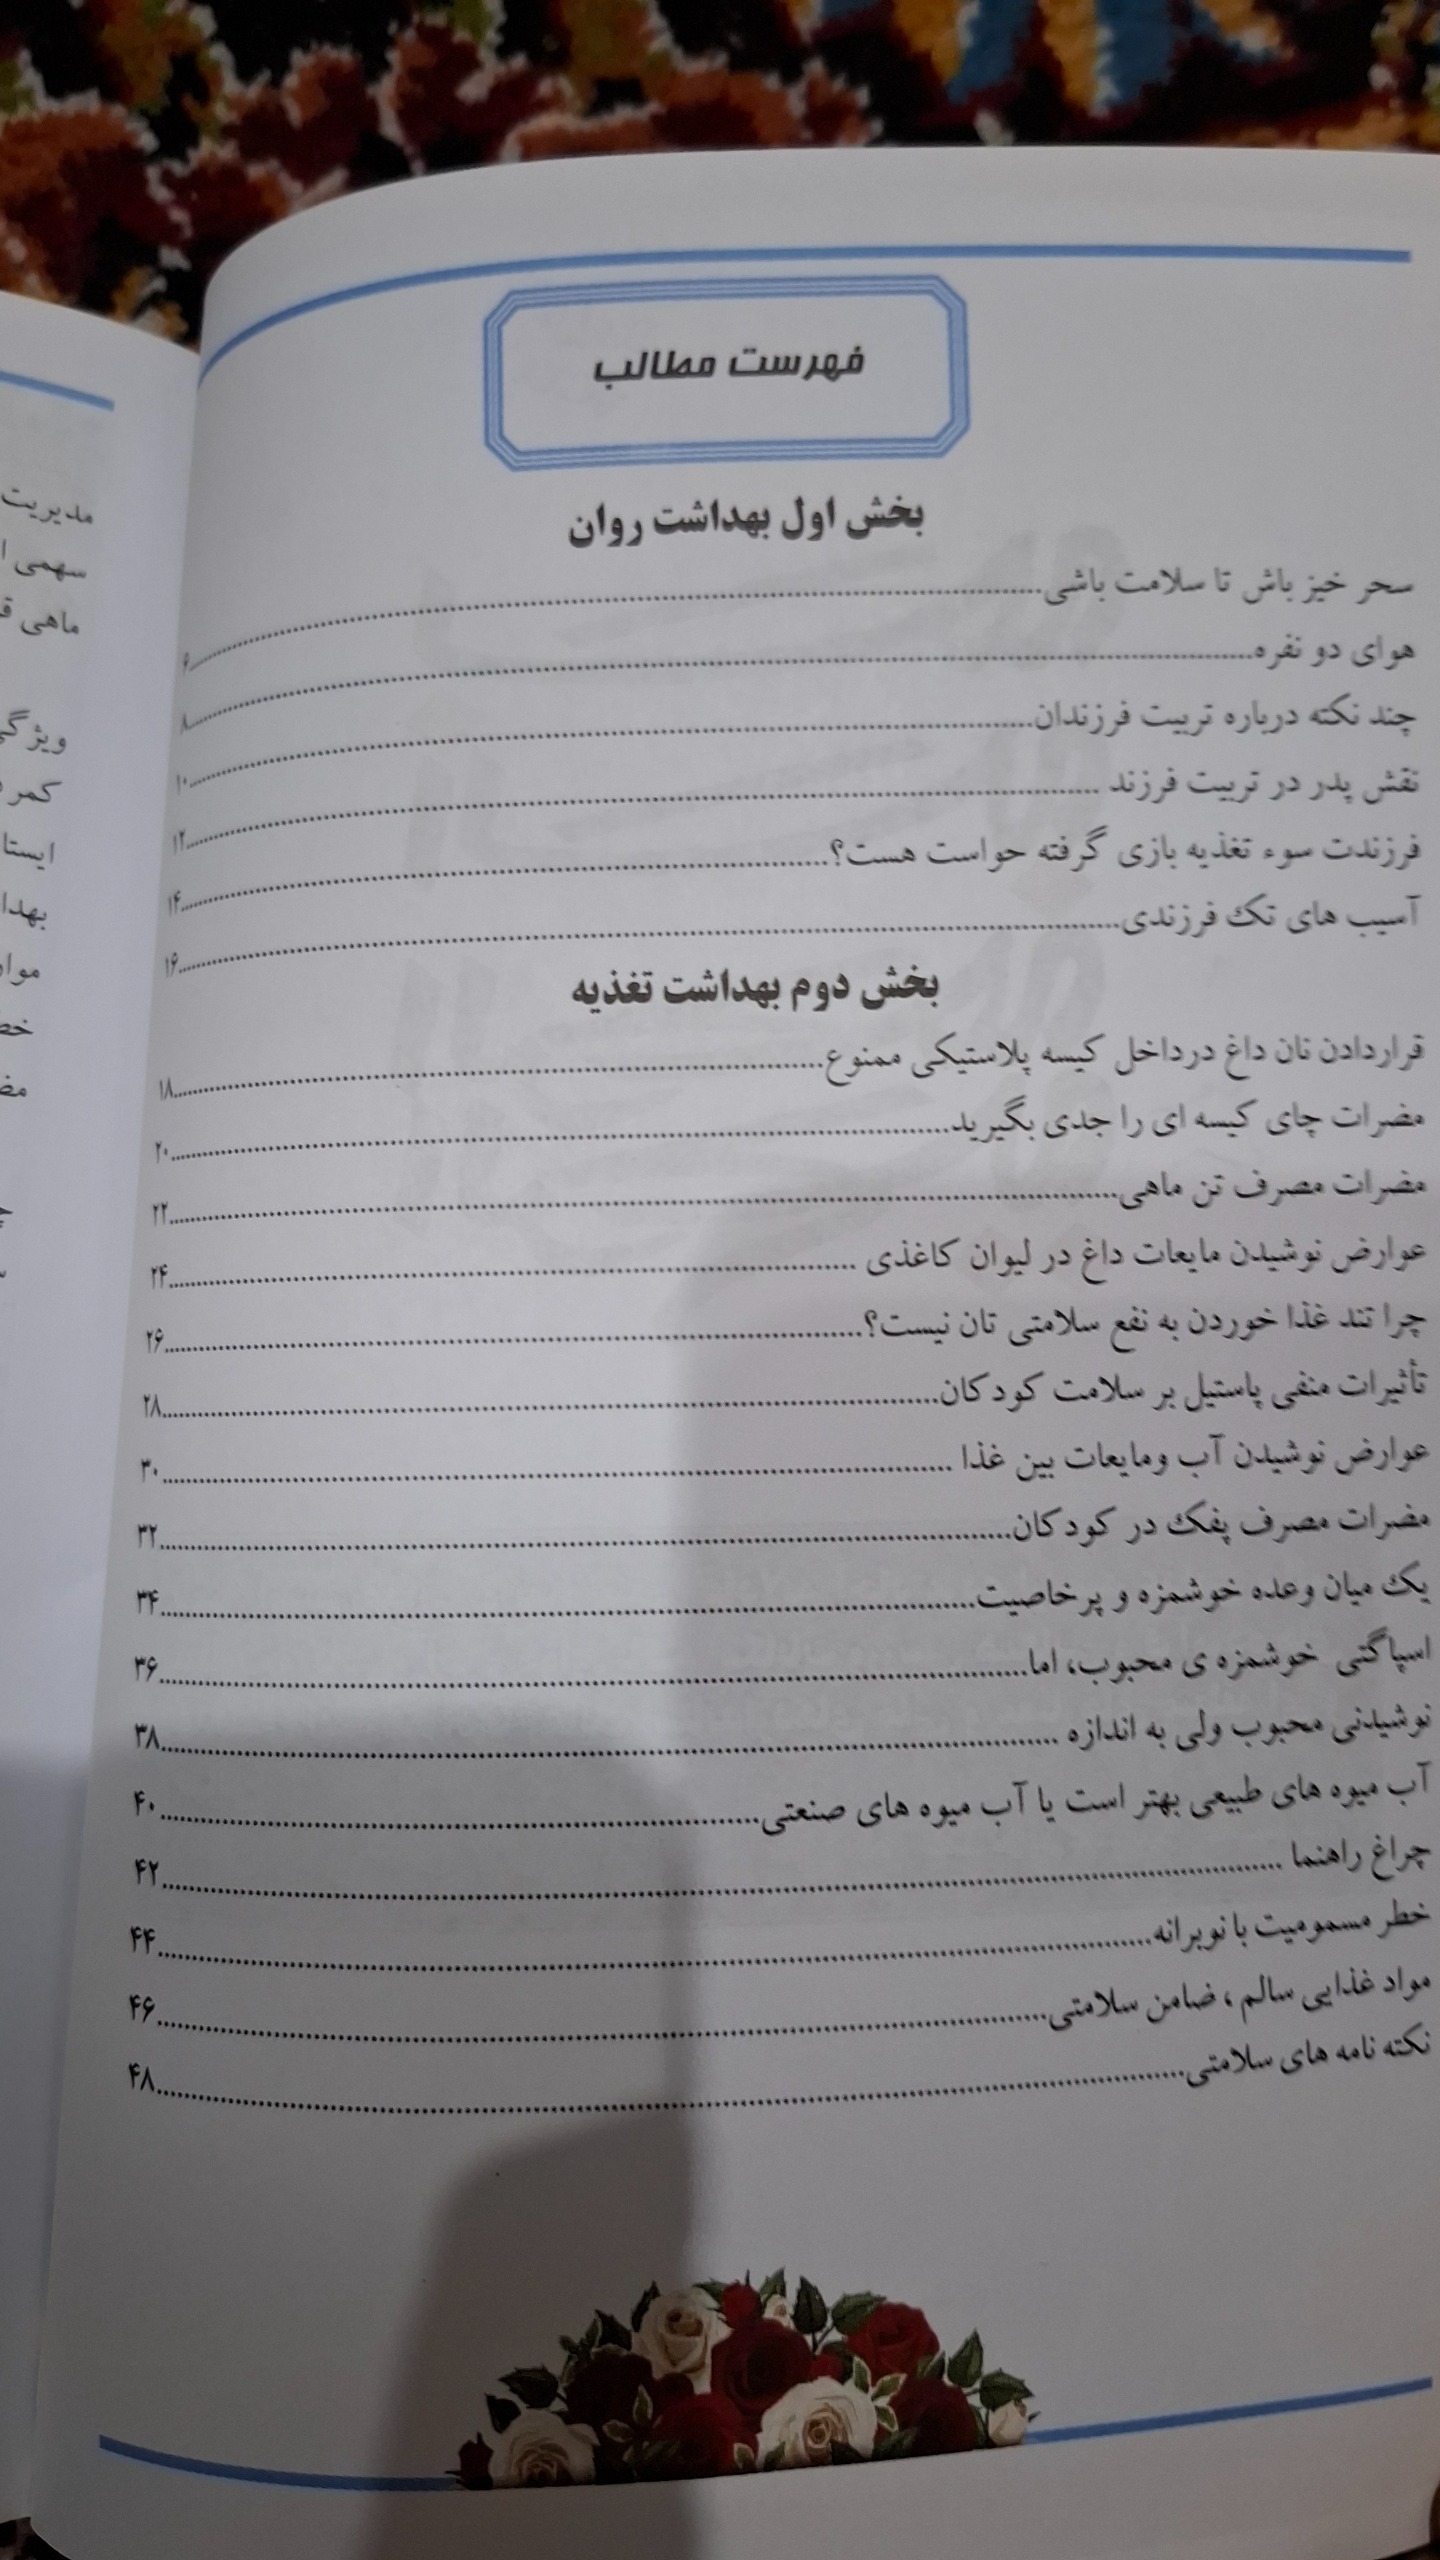 فهرست مطالب
بخش اول بهداشت روان
سحر خیز باش تا سلامت باشی........................۶
هوای دو نفره........................۸
چند نکته درباره تربیت فرزندان........................۱۰
نقش پدر در تربیت فرزند ........................۱۲
فرزندت سوء تغذیه بازی گرفته حواست هست؟........................۱۴
آسیب های تک فرزندی........................۱۶
بخش دوم بهداشت تغذیه
قراردادن نان داغ درداخل کیسه پلاستیکی ممنوع........................۱۸
مضرات چای کیسه ای را جدی بگیرید........................۲۰
مضرات مصرف تن ماهی........................۲۲
عوارض نوشیدن مایعات داغ در لیوان کاغذی ........................۲۴
چرا تند غذا خوردن به نفع سلامتی تان نیست؟........................۲۶
تأثیرات منفی پاستیل بر سلامت کودکان........................۲۸
عوارض نوشیدن آب ومایعات بین غذا ........................۳۰
مضرات مصرف پفک در کودکان........................۳۲
یک میان وعده خوشمزه و پرخاصیت........................۳۴
اسپاگتی خوشمزه ی محبوب، اما........................۳۶
نوشیدنی محبوب ولی به اندازه ........................۳۸
آب میوه های طبیعی بهتر است یا آب میوه های صنعتی........................۴۰
چراغ راهنما ........................۴۲
خطر مسمومیت با نوبرانه........................۴۴
مواد غذایی سالم ، ضامن سلامتی........................۴۶
نکته نامه های سلامتی........................۴۸
مدیریت
سهمی
ماهی